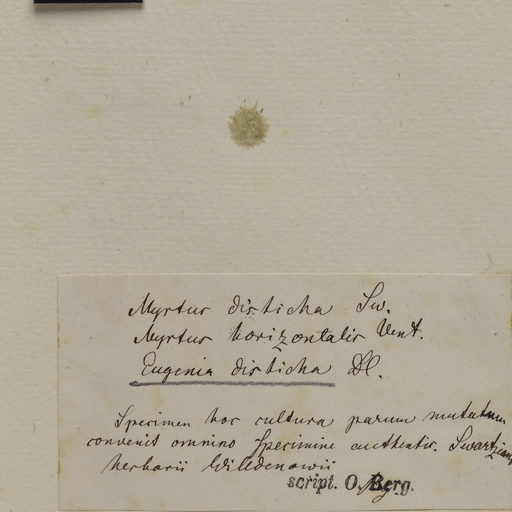 Myrtus disticha Sw.
Myrtus horizontalis Vent.
Eugenia disticha DC.
Specimen hoc cultura parum mutatum
convenit omnino specimine authentic. Swartziano
herbarii Willdenowii
script. O. Berg.